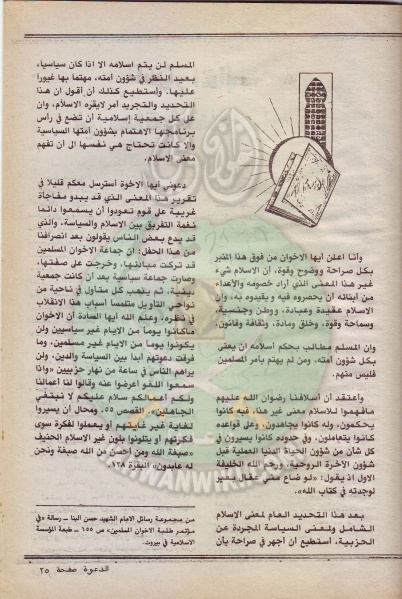 وأنا اعلن أيها الاخوان من فوق هذا المنبر
بكل صراحة ووضوح وقوة، أن الاسلام شيء
غير هذا المعنى الذي أراد خصومه والأعداء
من أبنائه أن يحصروه فيه و يقيدوه به، وأن
الاسلام عقيدة وعبادة، ووطن وجنسية،
وسماحة وقوة، وخلق ومادة، وثقافة وقانون،
وان المسلم مطالب بحكم اسلامه أن يعنى
بكل شؤون أمته، ومن لم يهتم بأمر المسلمين
فليس منهم.
وأعتقد أن أسلافنا رضوان الله عليهم
مافهموا للاسلام معنى غير هذا، فبه كانوا
يحكمون، وله كانوا يجاهدون، وعلى قواعده
كانوا يتعاملون، وفي حدوده كانوا يسيرون في
كل شأن من شؤون الحياة الدنيا العملية قبل
شؤون الآخرة الروحية، ورحم الله الخليفة
الاول اذ يقول: «لو ضاع مني عقال بعير
لوجدته في كتاب الله».
بعد هذا التحديد العام لمعنى الاسلام
الشامل ولمعنى السياسة المجردة عن
الحزبية، أستطيع أن أجهر في صراحة بأن
المسلم لن يتم اسلامه الا اذا كان سياسيا،
بعيد النظر في شؤون أمته، مهتما بها غيورا
عليها. وأستطيع كذلك أن أقول ان هذا
التحديد والتجريد أمر لايقره الاسلام، وان
على كل جمعية إسلامية أن تضع في رأس
برنامجها الاهتمام بشؤون أمتها السياسية
والا كانت تحتاج هي نفسها الى أن تفهم
معنى الاسلام.
دعوني أيها الاخوة أسترسل معكم قليلا في
تقرير هذا المعنى الذي قد يبدو مفاجأة
غريبة على قوم تعودوا أن يسمعوا دائما
نغمة التفريق بين الاسلام والسياسة، والذي
قد يدع بعض الناس يقولون بعد انصرافنا
من هذا الحفل: ان جماعة الاخوان المسلمين
قد تركت مبادئها، وخرجت على صفتها،
وصارت جماعة سياسية بعد أن كانت جمعية
دينية، ثم يذهب كل متأول في ناحية من
نواحي التأويل ملتمسا أسباب هذا الانقلاب
في نظره، وعلم الله أيها السادة أن الاخوان
ماكانوا يوما من الايام غير سياسيين ولن
يكونوا يوما من الايام غير مسلمين، وما
فرقت دعوتهم أبدا بين السياسة والدين، ولن
يراهم الناس في ساعة من نهار حزبيين «واذا
سمعوا اللغو أعرضوا عنه وقالوا لنا أعمالنا
ولكم أعمالكم سلام عليكم لا نبتغي
الجاهلين» القصص ٥٥، ومحال أن يسيروا
لغاية غير غايتهم أو يعملوا لفكرة سوى
فكرتهم أو يتلونوا بلون غير الاسلام الحنيف
«صبغة الله ومن أحسن من الله صبغة ونحن
له عابدون» البقرة ١٣٨.
من مجموعة رسائل الامام الشهيد حسن البنا ـ رسالة «في
مؤتمر طلبة الاخوان المسلمين» ص ١٥٥ ـ طبعة المؤسسة
الاسلامية في بيروت.
الدعوة صفحة ٢٥
IKHWANWIKI